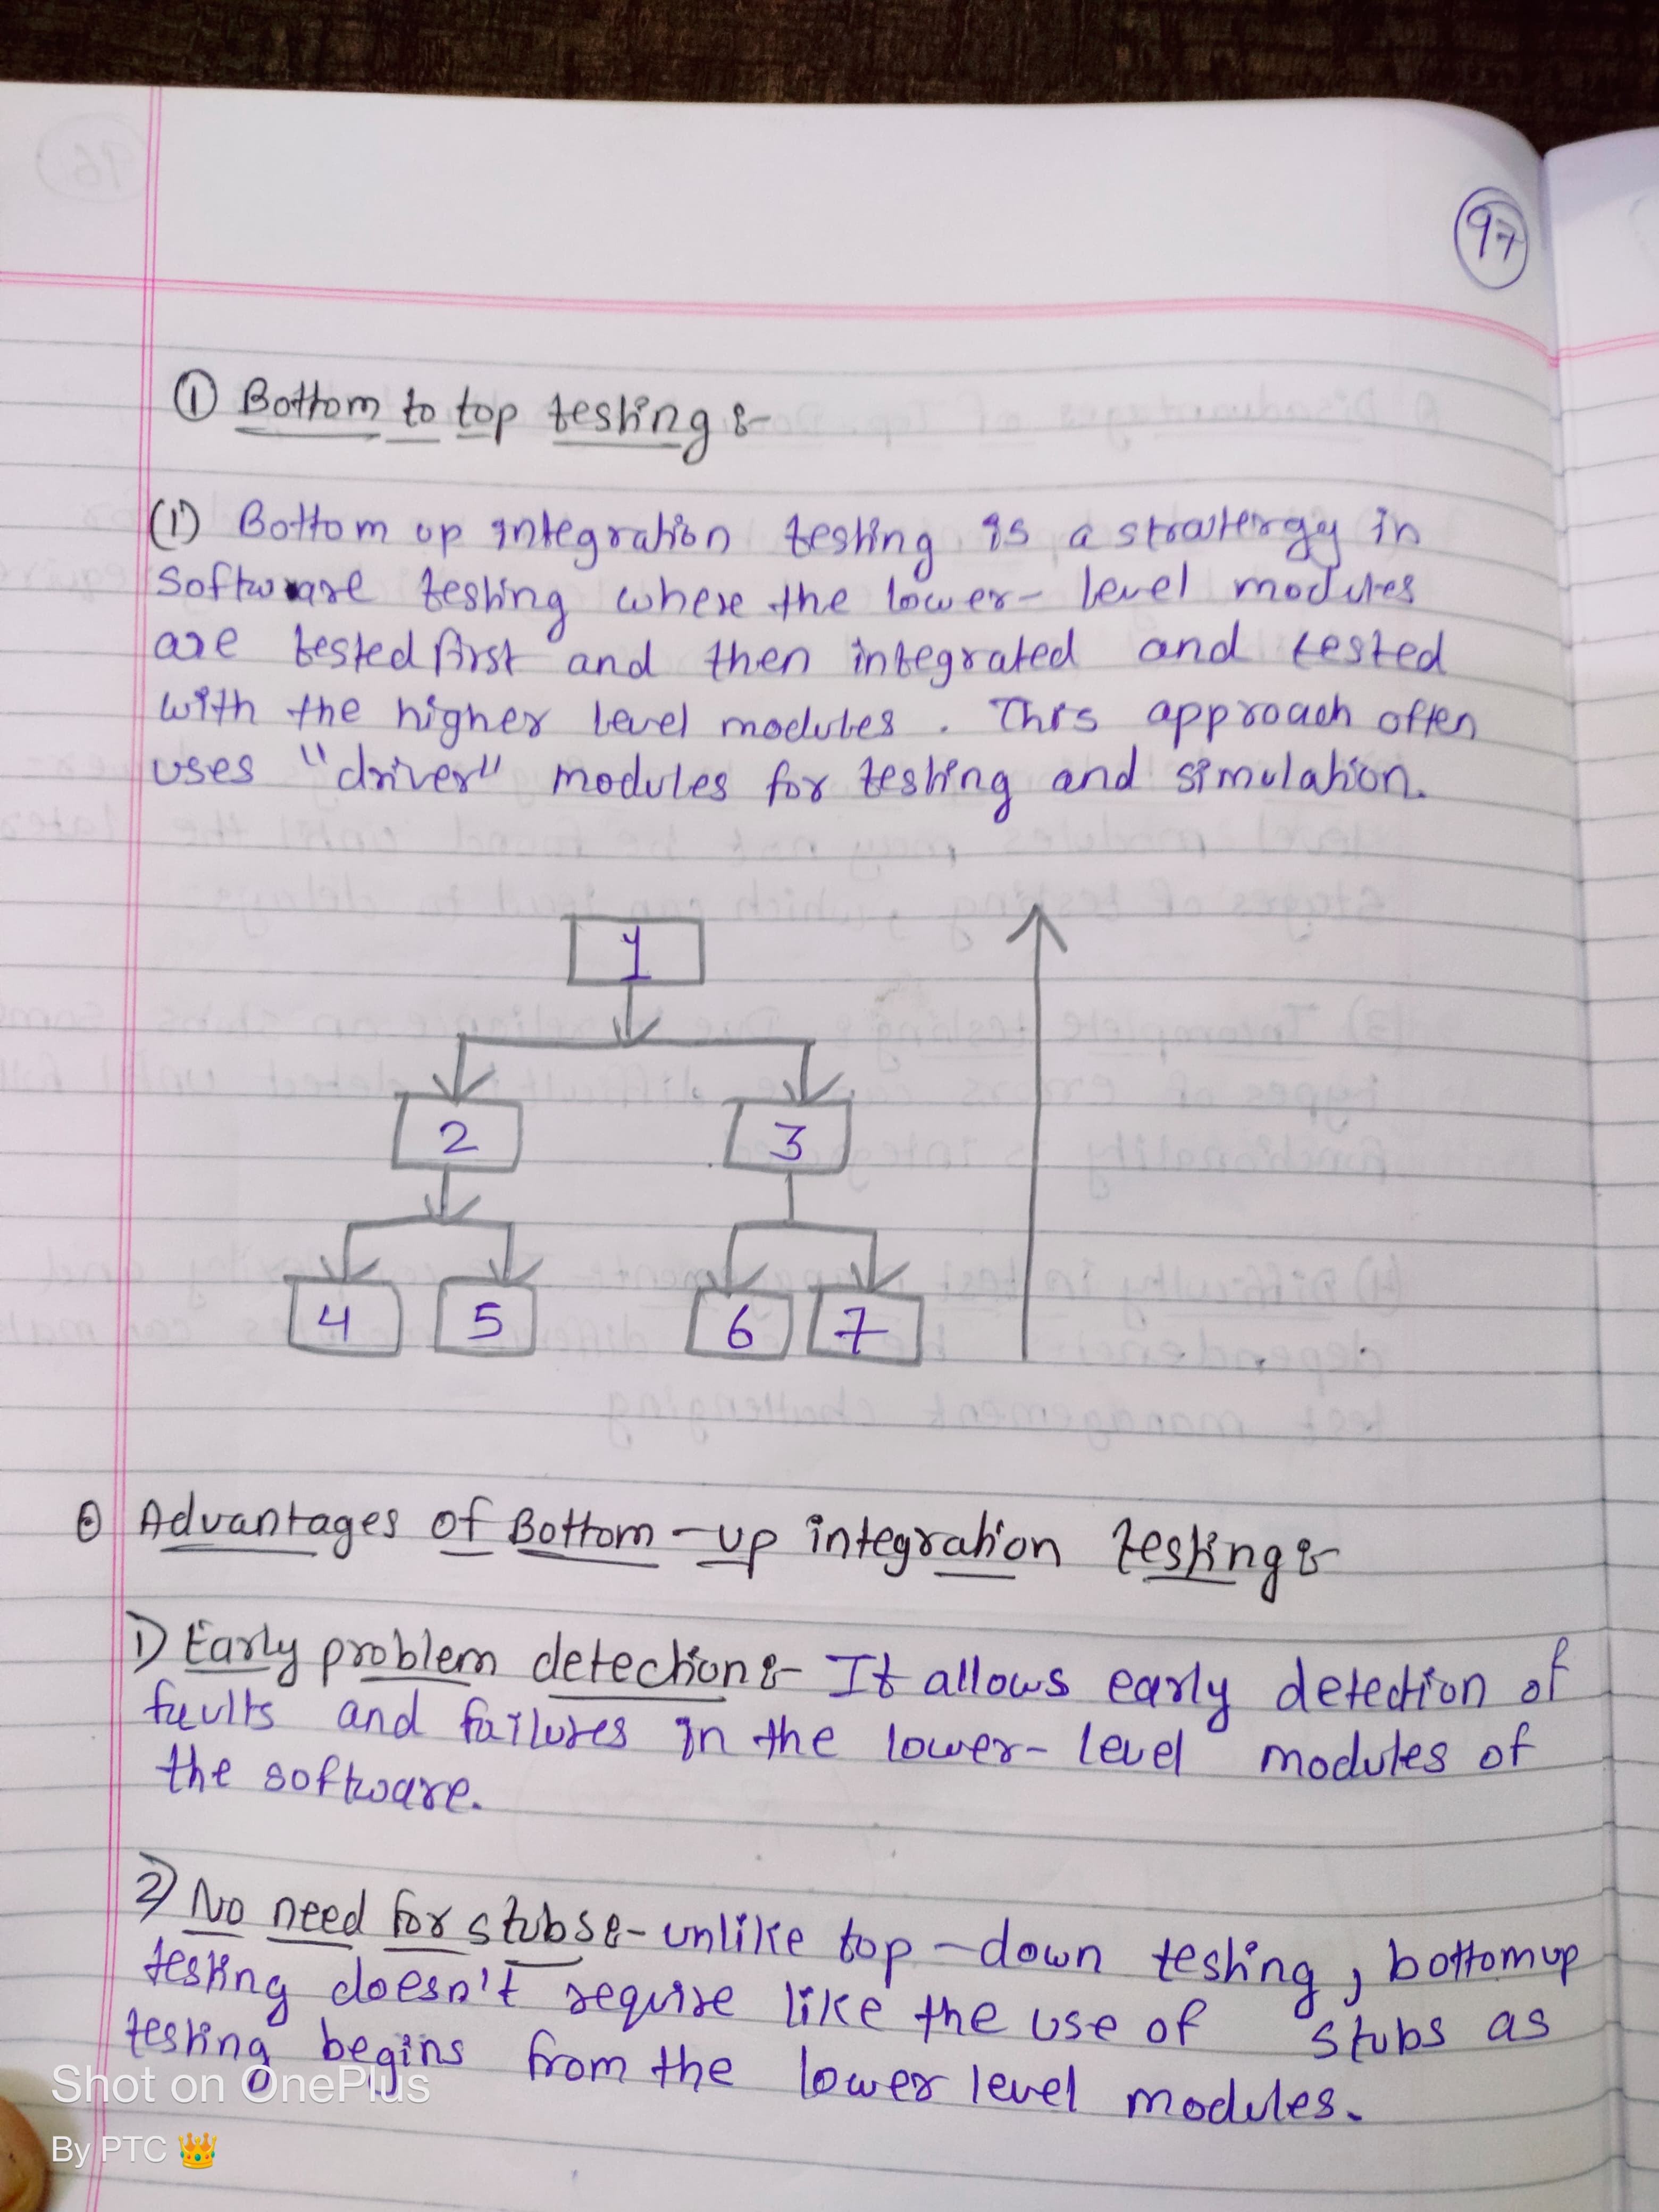 97
① Bottom to top testing :-
(1) Bottom up integration testing is a stratergy in
Software testing where the lower- level modules
are tested first and then integrated and tested
with the higher level modules. This approach often
uses "driver" modules for testing and simulation.
1
2 3
4 5 6 7
Advantages of Bottom-up integration testing:-
1) Early problem detection:- It allows early detection of
faults and failures in the lower-level modules of
the software.
2) No need for stubs:- unlike top-down testing, bottomup
testing doesn't require like the use of stubs as
testing begins from the lower level modules.
Shot on OnePlus
By PTC 👑